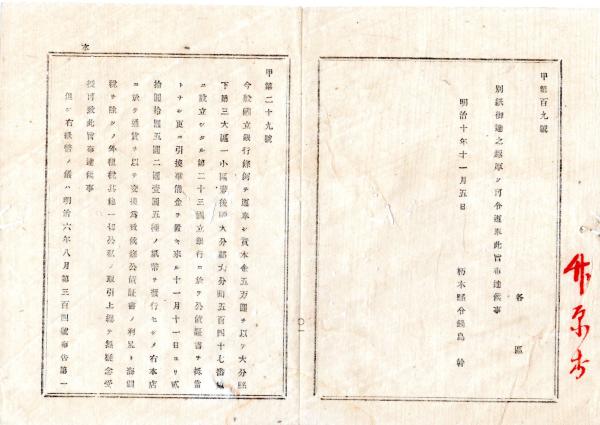 甲第百九號
各區
別紙御達之趣厚ク可令遵奉此旨布達候事
明治十年十一月五日
栃木縣令鍋島幹
甲第二十九號
今般國立銀行條例ヲ遵奉シ資本金五万圓ヲ以テ大分縣
下第三大區一小區豊後國大分郡大分町五百四十七番地
ニ設立シタル第二十三國立銀行ニ於テ公債証書ヲ抵當
トナシ更ニ引換準備金ヲ置キ來ル十一月十一日ヨリ貳
拾圓拾圓五圓二圓壹圓五種ノ紙幣ヲ發行セシメ右本店
ニ於テ通貨ヲ以テ交換為致候條公債証書ノ利息ト海關
税ヲ除クノ外租税其他一切公私ノ取引上總テ無疑念受
授可致此旨布達候事
但シ右紙幣ノ儀ハ明治六年八月第三百四號布告第一